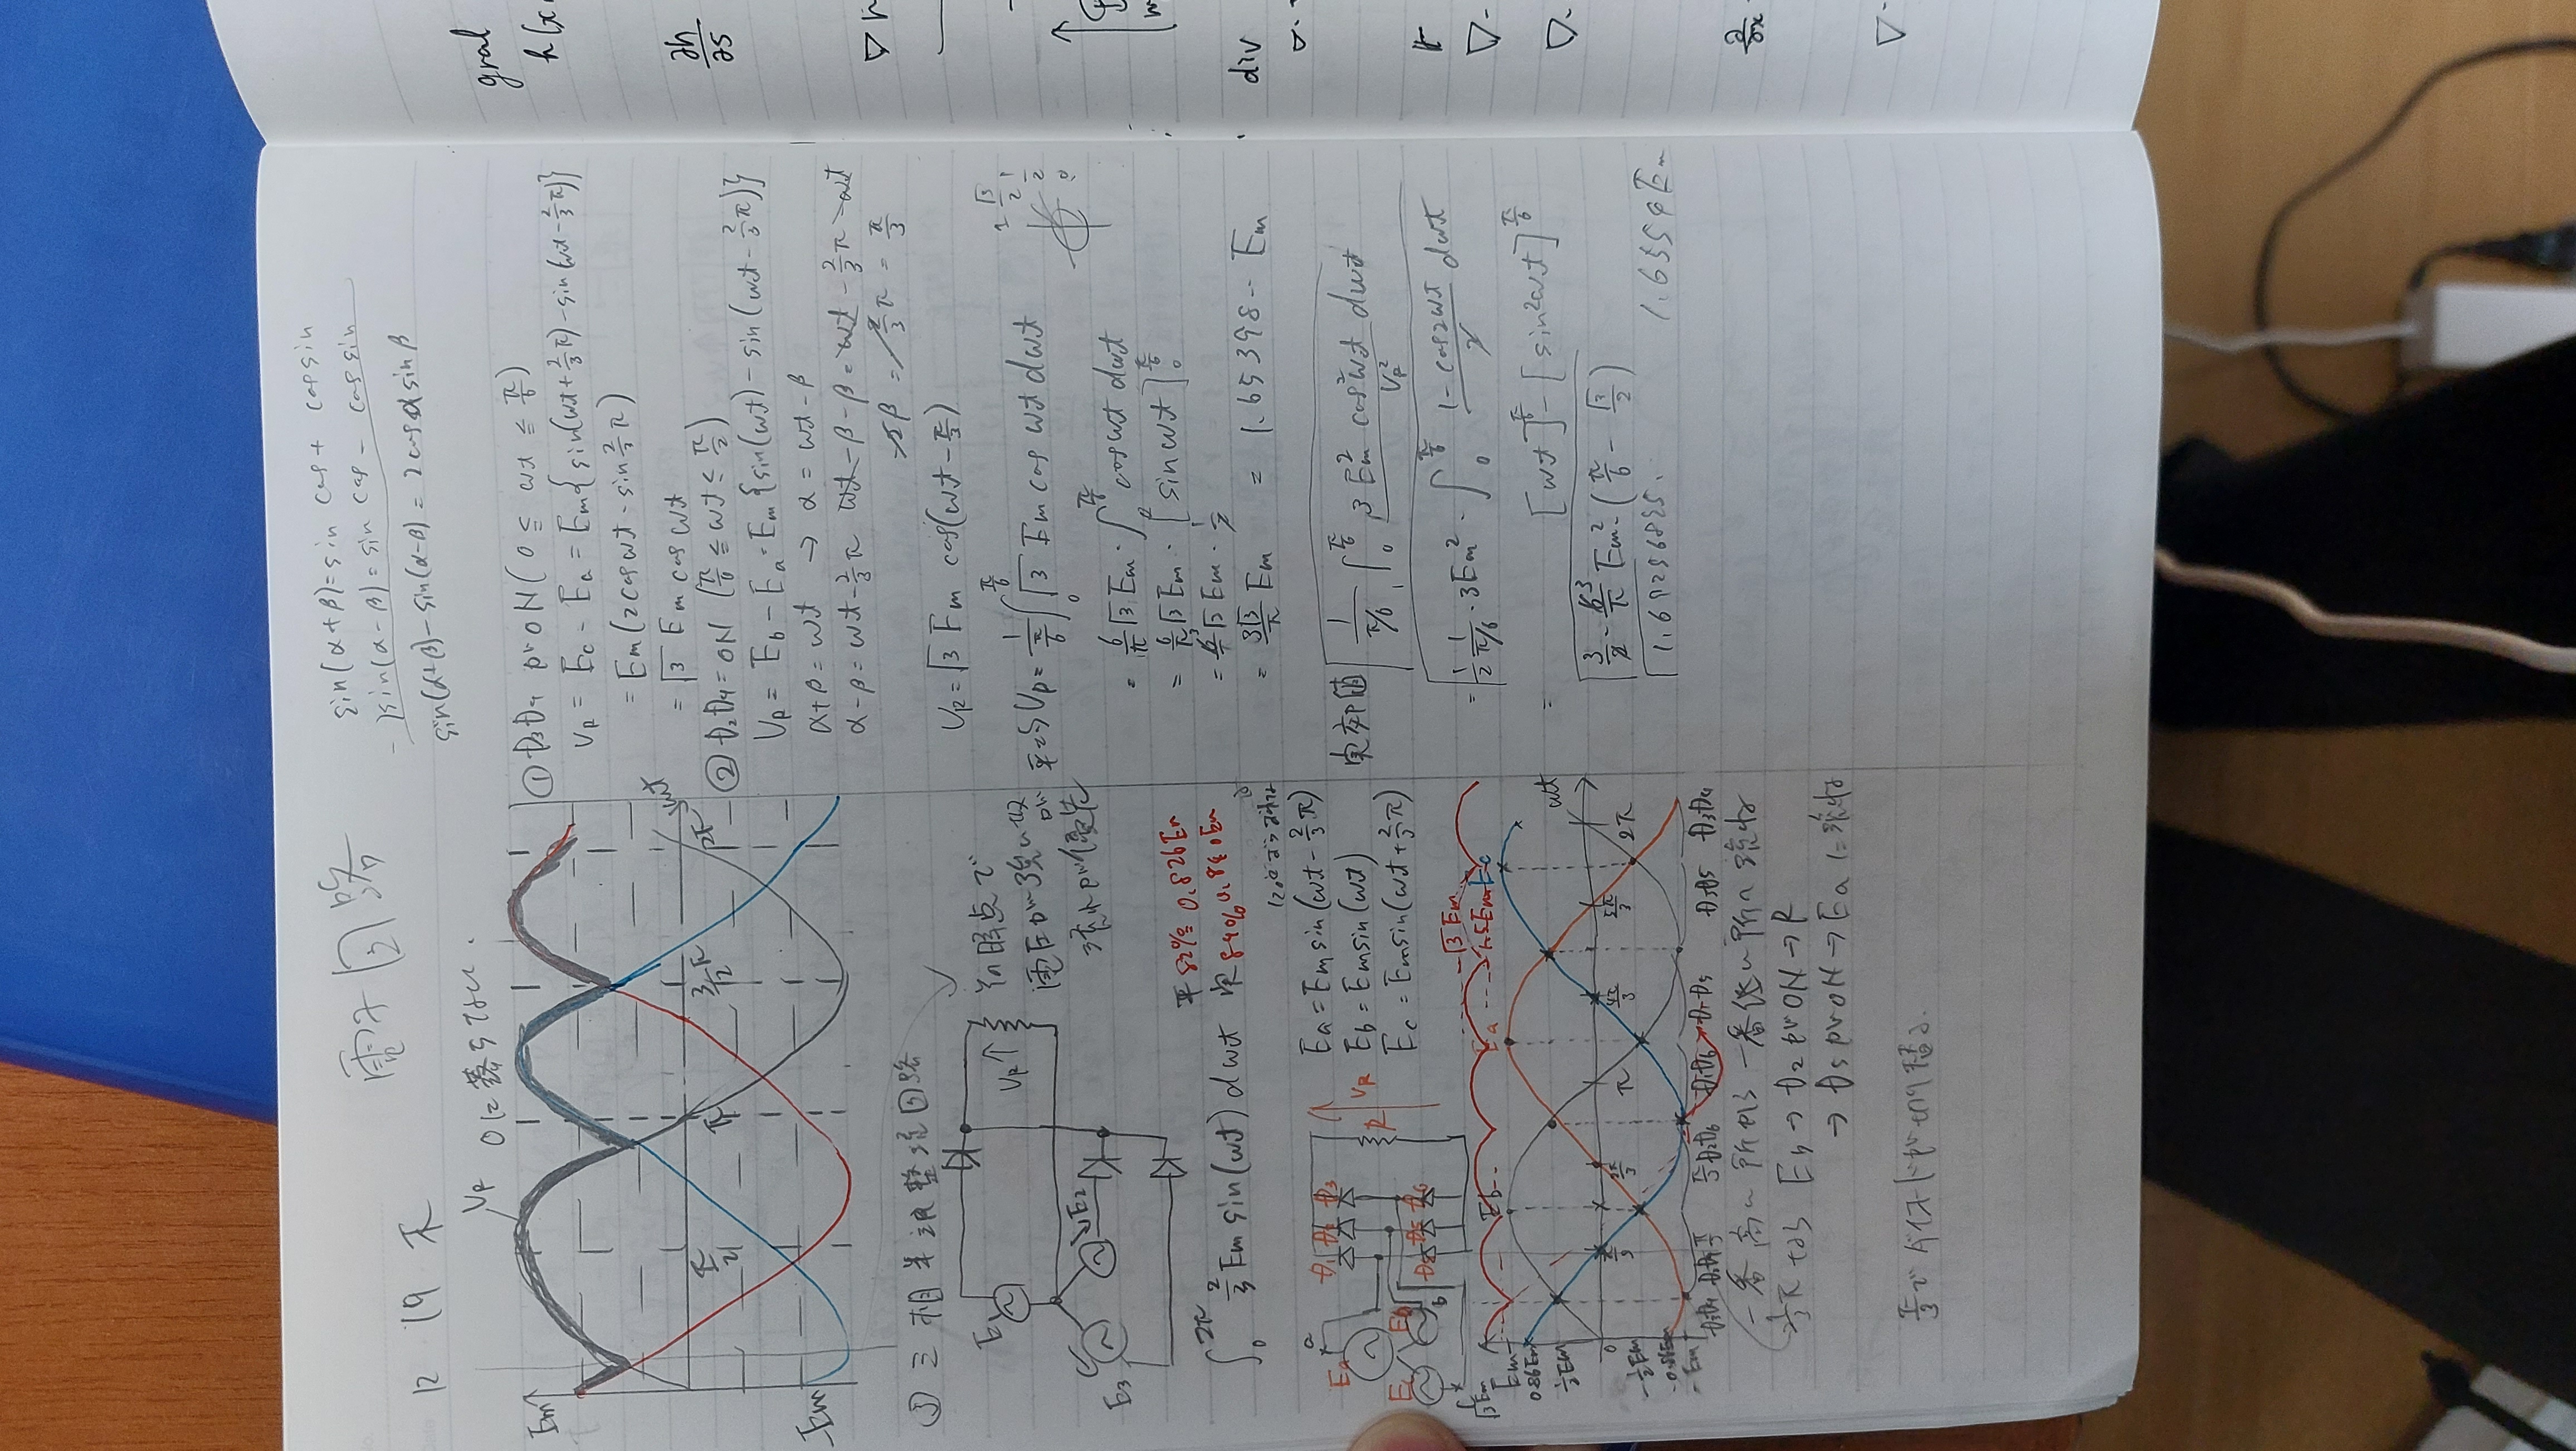 電子回路
12 19 木
VR 0に落ちない.
Em
-Em
π/2
π
3/2 π
2π
ωt
⑤ 三相半波整流回路
E1
E2
E3
VR↑
その時点で
電圧が強いやつ
が
流れが優先
∫₀^2π 2/3 Em sin(ωt) dωt
平 82% 0.826Em
実 84% 0.840Em
120°ごと
a
Ea
Ec
b
D1
D3
R
VR
Ea = Em sin(ωt - 2/3 π)
Eb = Em sin(ωt)
Ec = Em sin(ωt + 2/3 π)
√3 Em
1.5Em
√3Em
Em
0.86Em
1/2 Em
0
-1/2 Em
-0.86Em
-Em
Eb
Ea
Ec
π/3
2π/3
π
4π/3
5π/3
2π
ωt
D3D4
D1D6
D1D5
D3D5
D3D4
一番高い所から一番低い所へ流れる
1/3 π なら Eb → D2がON → R
→ D5がON → Eaに流れる
π/3で ダイオードが切り替る.
sin(α+β) = sin cos + cos sin
-)sin(α-β) = sin cos - cos sin
sin(α+β) - sin(α-β) = 2cosα sinβ
① D3D4がON (0 ≦ ωt ≦ π/6)
VR = Ec - Ea = Em{sin(ωt + 2/3 π) - sin(ωt - 2/3 π)}
= Em(2cosωt · sin 2/3 π)
= √3 Em cos ωt
② D2D4 = ON (π/6 ≦ ωt ≦ π/2)
VR = Eb - Ea = Em{sin(ωt) - sin(ωt - 2/3 π)}
α+β = ωt → α = ωt - β
α-β = ωt - 2/3 π ωt - β - β = ωt - 2/3 π - ωt
-2β = -2/3 π = π/3
VR = √3 Em cos(ωt - π/3)
平均VR = 1/(π/6) ∫₀^π/6 √3 Em cos ωt dωt
= 6/π √3 Em · ∫₀^π/6 cosωt dωt
= 6/π √3 Em · [sin ωt]₀^π/6
= 6/π √3 Em · 1/2
= 3√3/π Em = 1.65398… Em
1 √3/2 1/2 0
実効値 √(1/(π/6) ∫₀^π/6 3Em² cos²ωt dωt)
VR²
= √(1/2 1/(π/6) · 3Em² · ∫₀^π/6 (1-cos2ωt)/2 dωt)
= [ωt]^π/6 - [sin2ωt]^π/6
√(3/2 · 6/π Em² · (π/6 - √3/2))
√1.69256825. 1.6554Em
gral
∂h/∂s
div
∂/∂x